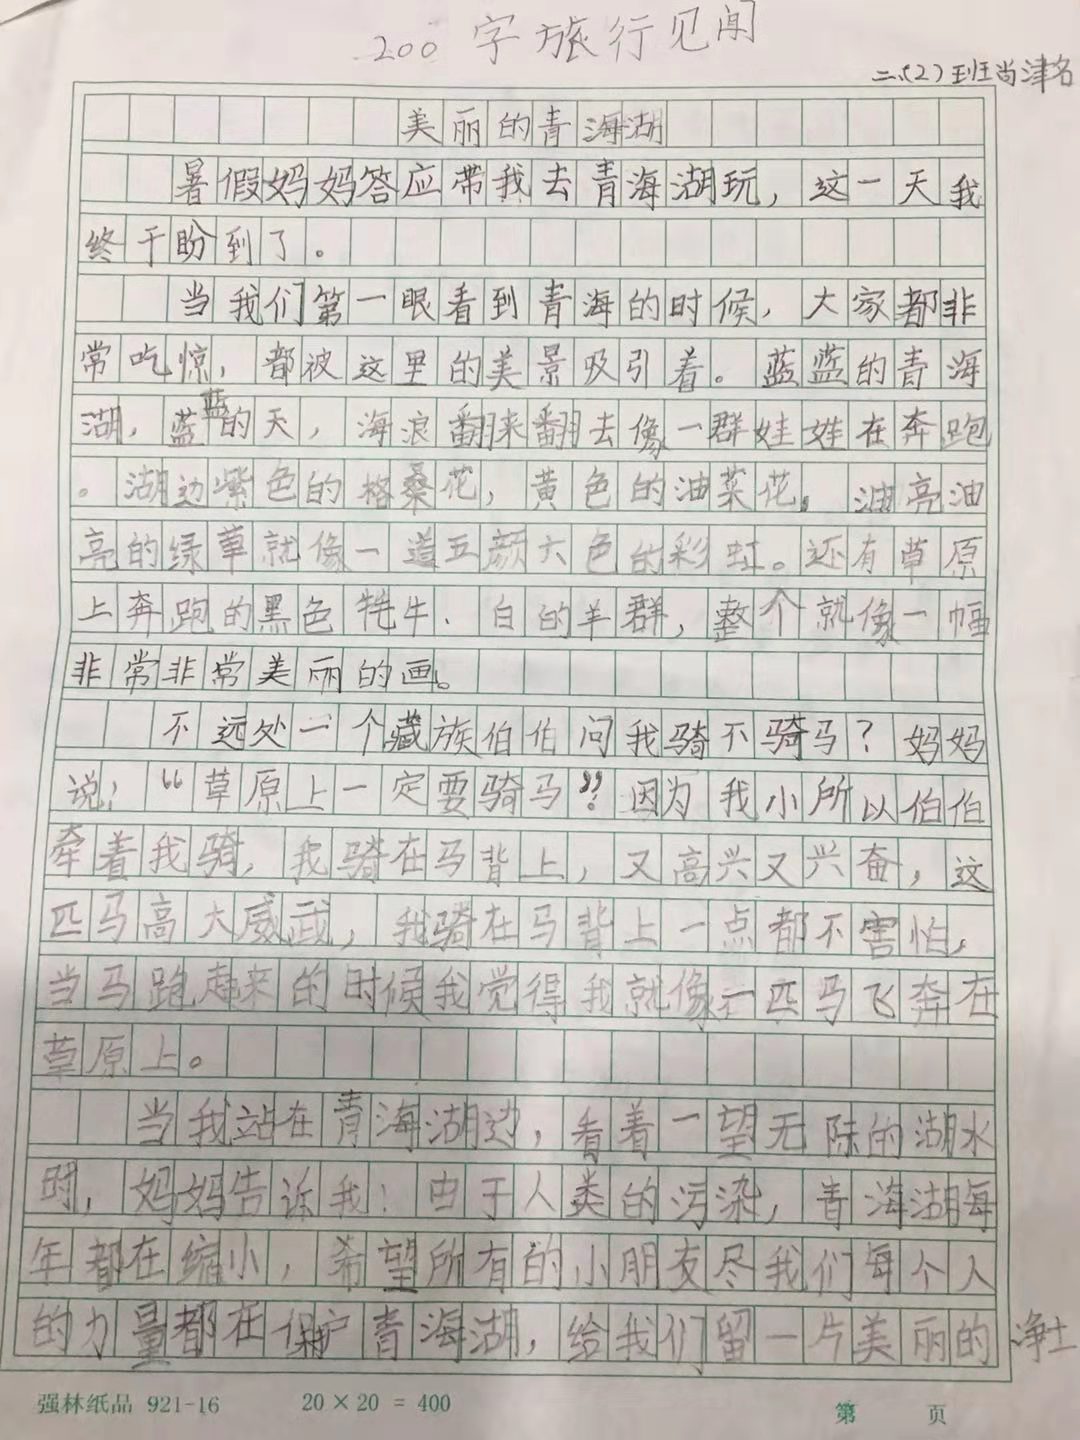 200字旅行见闻
三(2)班尚津名
美丽的青海湖
暑假妈妈答应带我去青海湖玩，这一天我
终于盼到了。
当我们第一眼看到青海的时候，大家都非
常吃惊，都被这里的美景吸引着。蓝蓝的青海
湖，蓝蓝的天，海浪翻来翻去像一群娃娃在奔跑
。湖边紫色的格桑花，黄色的油菜花，油亮油
亮的绿草就像一道五颜六色的彩虹。还有草原
上奔跑的黑色牦牛.白的羊群，整个就像一幅
非常非常美丽的画。
不远处一个藏族伯伯问我骑不骑马？妈妈
说："草原上一定要骑马"。因为我小所以伯伯
牵着我骑，我骑在马背上，又高兴又兴奋，这
匹马高大威武，我骑在马背上一点都不害怕，
当马跑起来的时候我觉得我就像一匹马飞奔在
草原上。
当我站在青海湖边，看着一望无际的湖水
时，妈妈告诉我！由于人类的污染，青海湖每
年都在缩小，希望所有的小朋友尽我们每个人
的力量都在保护青海湖，给我们留一片美丽的净土
强林纸品 921-16 20×20=400 第 页